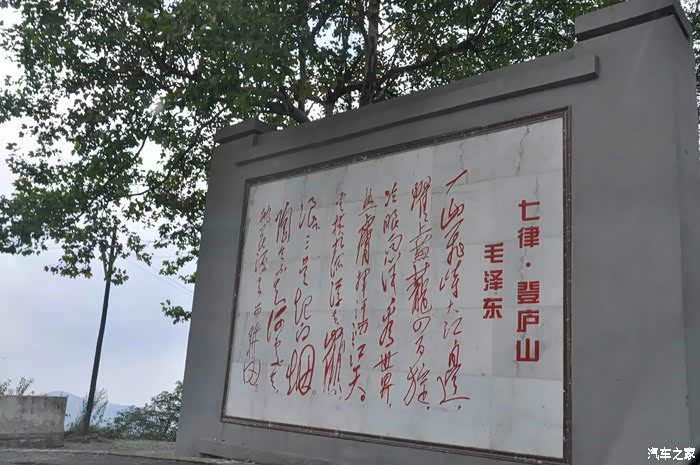 七律·登庐山
毛泽东
一山飛峙大江邊，
躍上葱蘢四百旋。
冷眼向洋看世界，
热膚揮汗洒江天。
云横九派浮黄鶴，
浪下三吴起白烟。
陶令不知何处去，
桃花源里可耕田
汽车之家